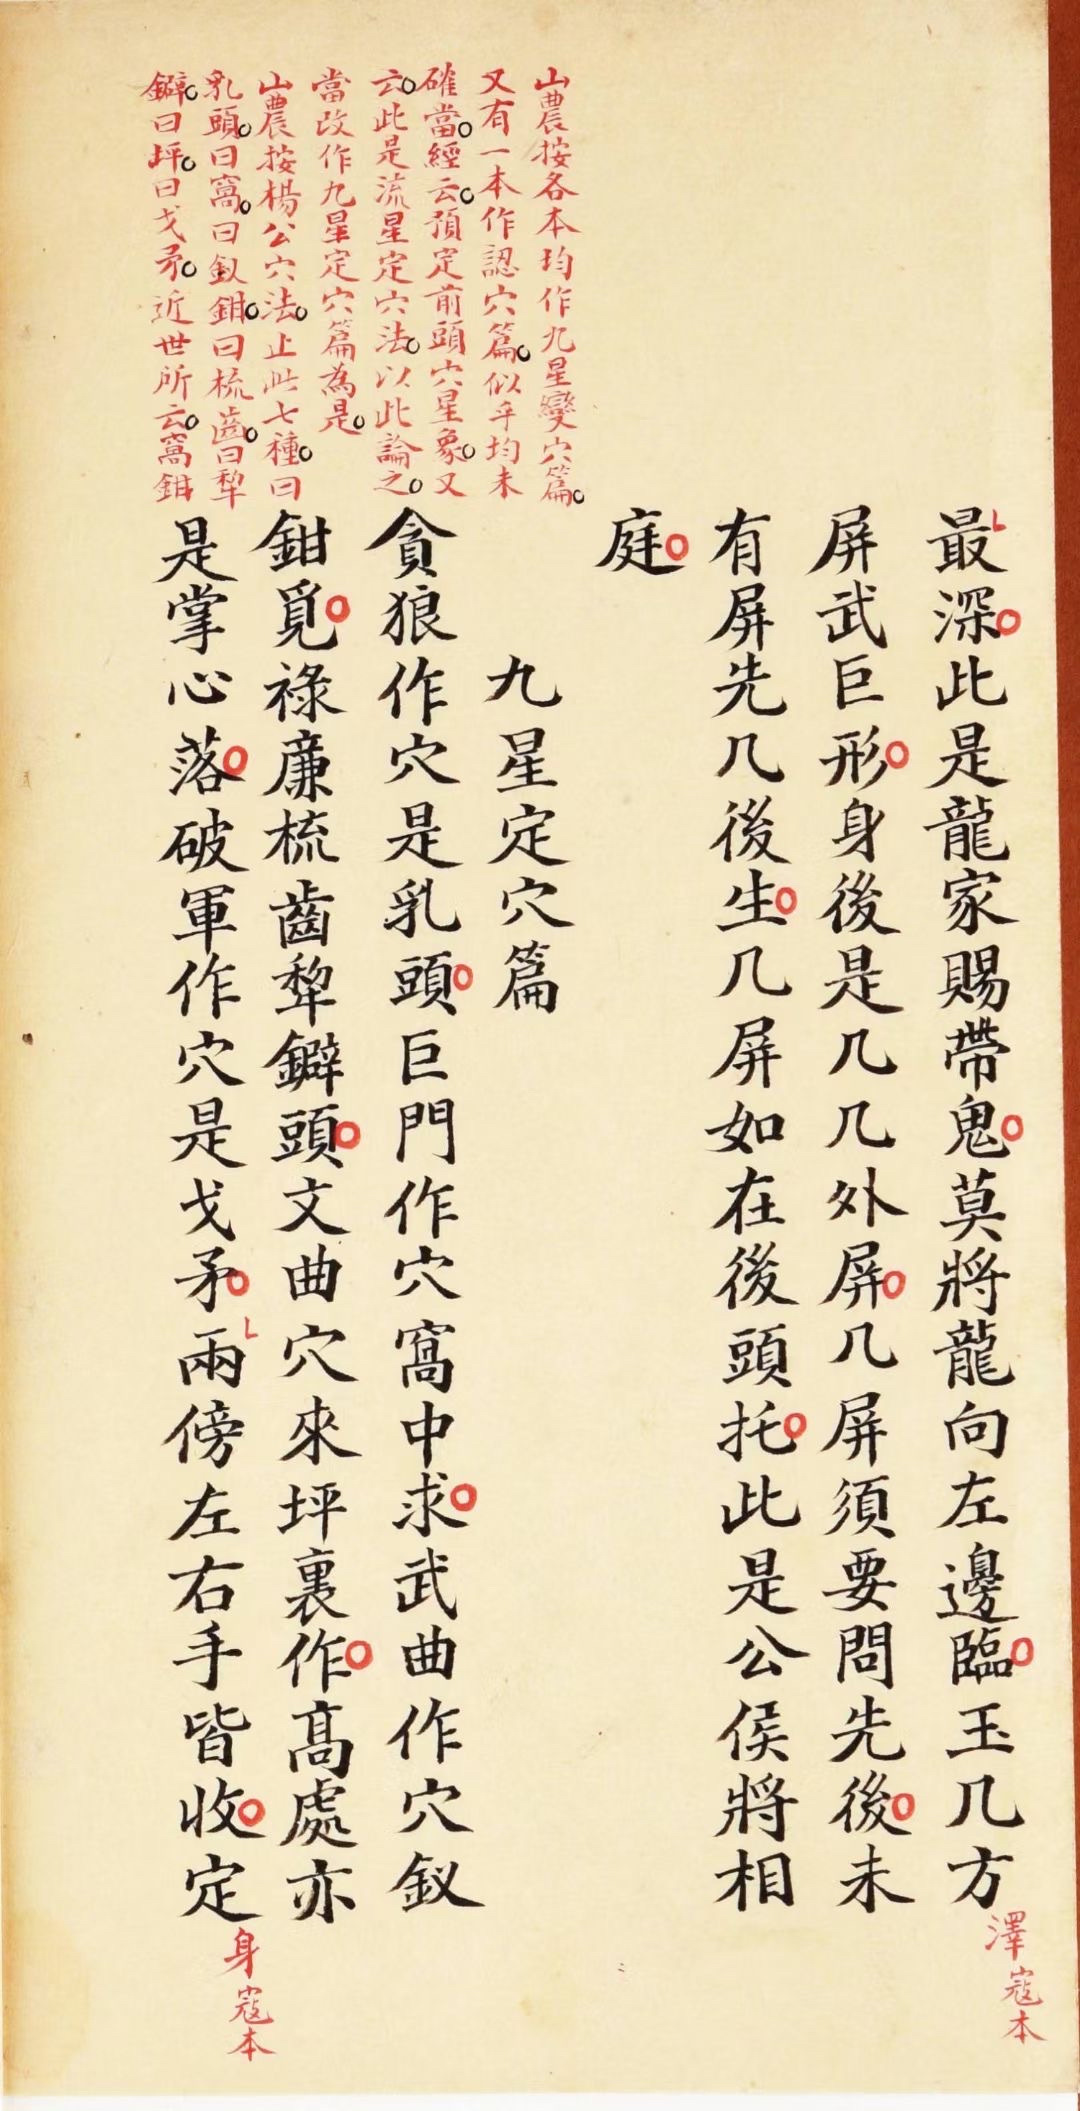 最深此是龍家賜帶鬼莫將龍向左邊臨玉几方
澤寇本
屏武巨形身後是几几外屏几屏須要問先後未
有屏先几後生几屏如在後頭托此是公侯將相
庭
九星定穴篇
山農按各本均作九星變穴篇
又有一本作認穴篇似乎均未
確當經云預定前頭穴星象又
云此是流星定穴法以此論之
當改作九星定穴篇為是
山農按楊公穴法止此七種曰
乳頭曰窩曰釵鉗曰梳齒曰犂
鐴曰坪曰戈矛近世所云窩鉗
貪狼作穴是乳頭巨門作穴窩中求武曲作穴釵
鉗覓祿廉梳齒犂鐴頭文曲穴來坪裏作高處亦
是掌心落破軍作穴是戈矛兩傍左右手皆收定
身寇本